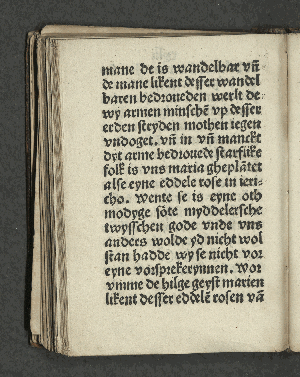 mane de is wandelbar vn̄
de mane likent desser wandel
baren bedroueden werlt de
wy armen minschē vp desser
erden stryden mothen iegen
vndoget. vn̄ in vn̄ manckt
dyt arme bedrouede starflike
folk is vns maria gheplātet
alse eyne eddele rose in ieri-
cho. Wente se is eyne oth
modyge sōte myddelersche
twysschen gode vnde vns
anders wolde yd nicht wol
stan hadde wy se nicht vor
eyne vorsprekerynnen. Wor
vmme de hilge geyst marien
likent desser eddelē rosen vā